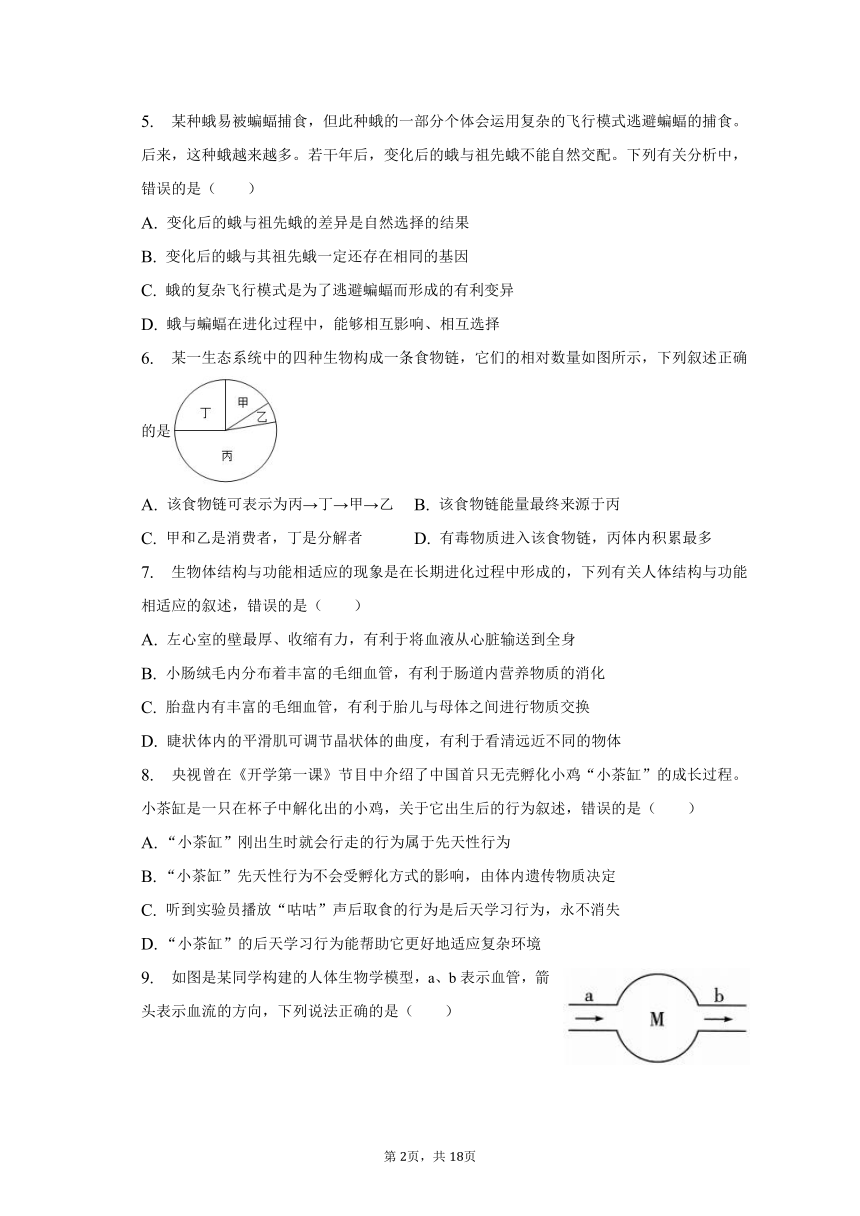 5. 某种蛾易被蝙蝠捕食，但此种蛾的一部分个体会运用复杂的飞行模式逃避蝙蝠的捕食。
后来，这种蛾越来越多。若干年后，变化后的蛾与祖先蛾不能自然交配。下列有关分析中，
错误的是（　　）
A. 变化后的蛾与祖先蛾的差异是自然选择的结果
B. 变化后的蛾与其祖先蛾一定还存在相同的基因
C. 蛾的复杂飞行模式是为了逃避蝙蝠而形成的有利变异
D. 蛾与蝙蝠在进化过程中，能够相互影响、相互选择
6. 某一生态系统中的四种生物构成一条食物链，它们的相对数量如图所示，下列叙述正确
的是
丁
甲
乙
丙
A. 该食物链可表示为丙→丁→甲→乙 B. 该食物链能量最终来源于丙
C. 甲和乙是消费者，丁是分解者 D. 有毒物质进入该食物链，丙体内积累最多
7. 生物体结构与功能相适应的现象是在长期进化过程中形成的，下列有关人体结构与功能
相适应的叙述，错误的是（　　）
A. 左心室的壁最厚、收缩有力，有利于将血液从心脏输送到全身
B. 小肠绒毛内分布着丰富的毛细血管，有利于肠道内营养物质的消化
C. 胎盘内有丰富的毛细血管，有利于胎儿与母体之间进行物质交换
D. 睫状体内的平滑肌可调节晶状体的曲度，有利于看清远近不同的物体
8. 央视曾在《开学第一课》节目中介绍了中国首只无壳孵化小鸡“小茶缸”的成长过程。
小茶缸是一只在杯子中解化出的小鸡，关于它出生后的行为叙述，错误的是（　　）
A. “小茶缸”刚出生时就会行走的行为属于先天性行为
B. “小茶缸”先天性行为不会受孵化方式的影响，由体内遗传物质决定
C. 听到实验员播放“咕咕”声后取食的行为是后天学习行为，永不消失
D. “小茶缸”的后天学习行为能帮助它更好地适应复杂环境
9. 如图是某同学构建的人体生物学模型，a、b 表示血管，箭
头表示血流的方向，下列说法正确的是（　　）
a
b
M
第 2页，共 18页